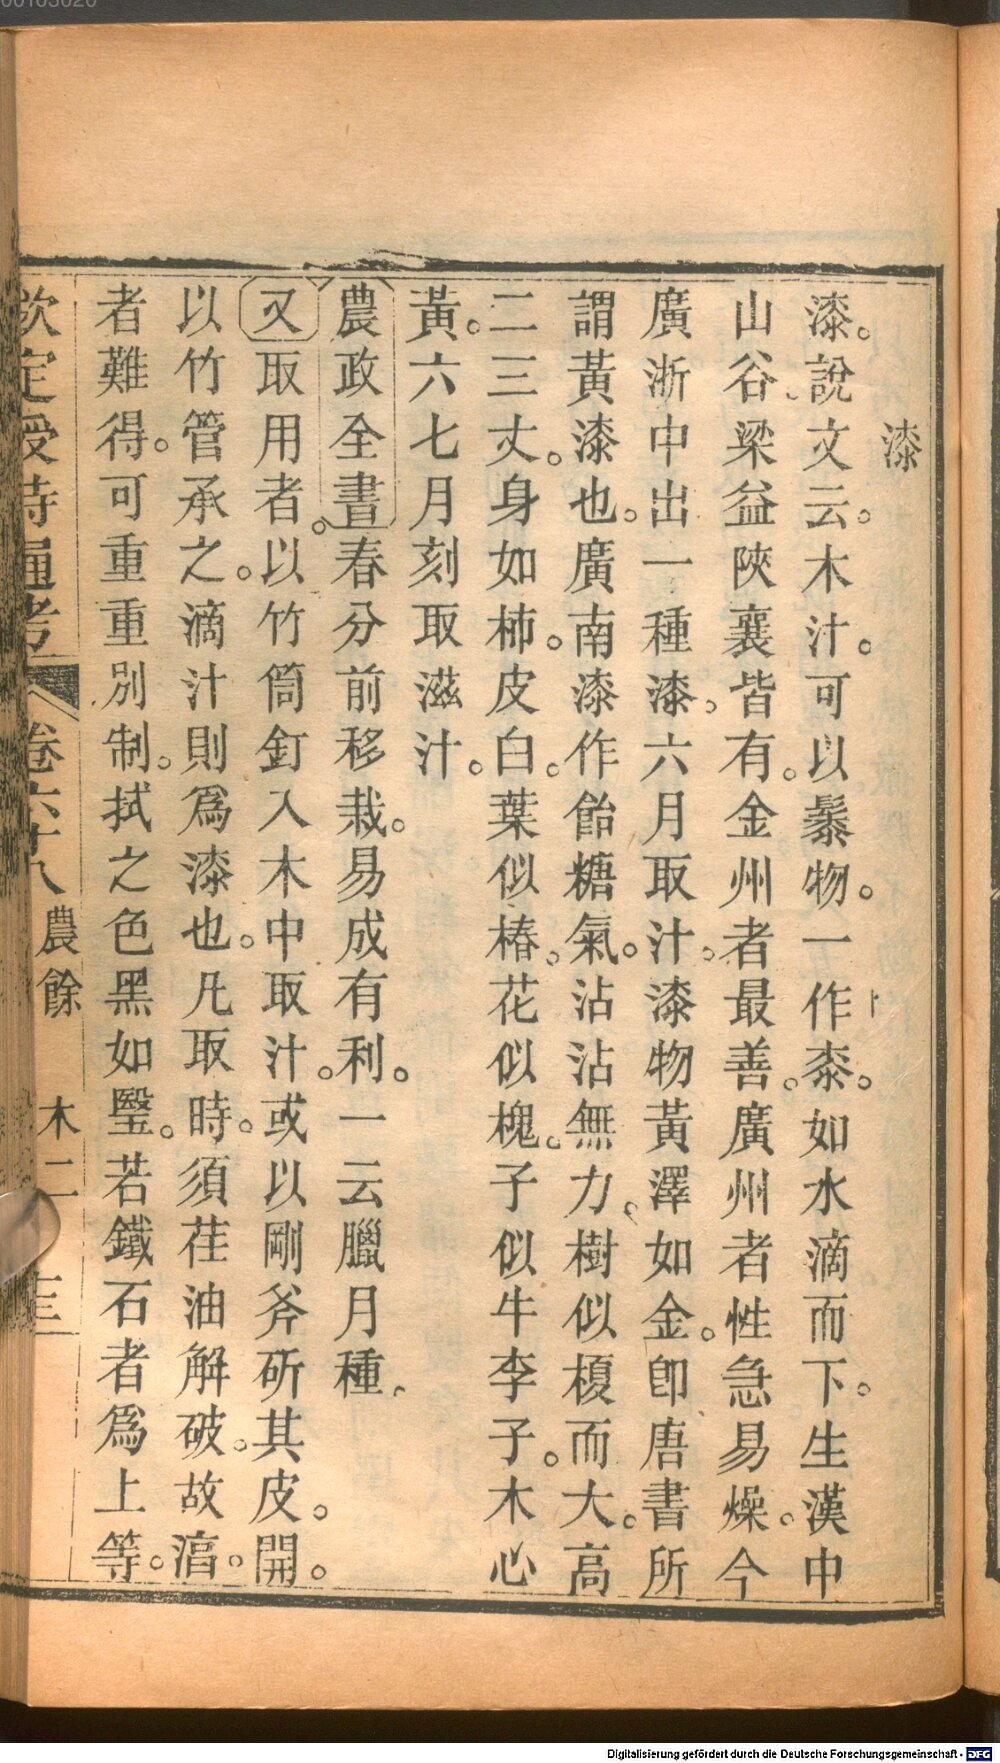 漆
漆。說文云。木汁。可以鬃物。一作桼。如水滴而下。生漢中
山谷。梁益陜襄皆有。金州者最善。廣州者性急易燥。今
廣浙中出一種漆。六月取汁。漆物黃澤如金。卽唐書所
謂黃漆也。廣南漆作飴糖氣。沾沾無力。樹似榎而大。高
二三丈。身如柿。皮白。葉似椿。花似槐。子似牛李子。木心
黃。六七月刻取滋汁。
農政全書春分前移栽。易成有利。一云臘月種。
又取用者。以竹筒釘入木中取汁。或以剛斧斫其皮。開。
以竹管承之。滴汁則爲漆也。凡取時。須荏油解破。故湻。
者難得。可重重別制。拭之色黑如瑿。若鐵石者爲上等。
欽定授時通考 卷六十八 農餘 木二 十三
Digitalisierung gefördert durch die Deutsche Forschungsgemeinschaft - DFG